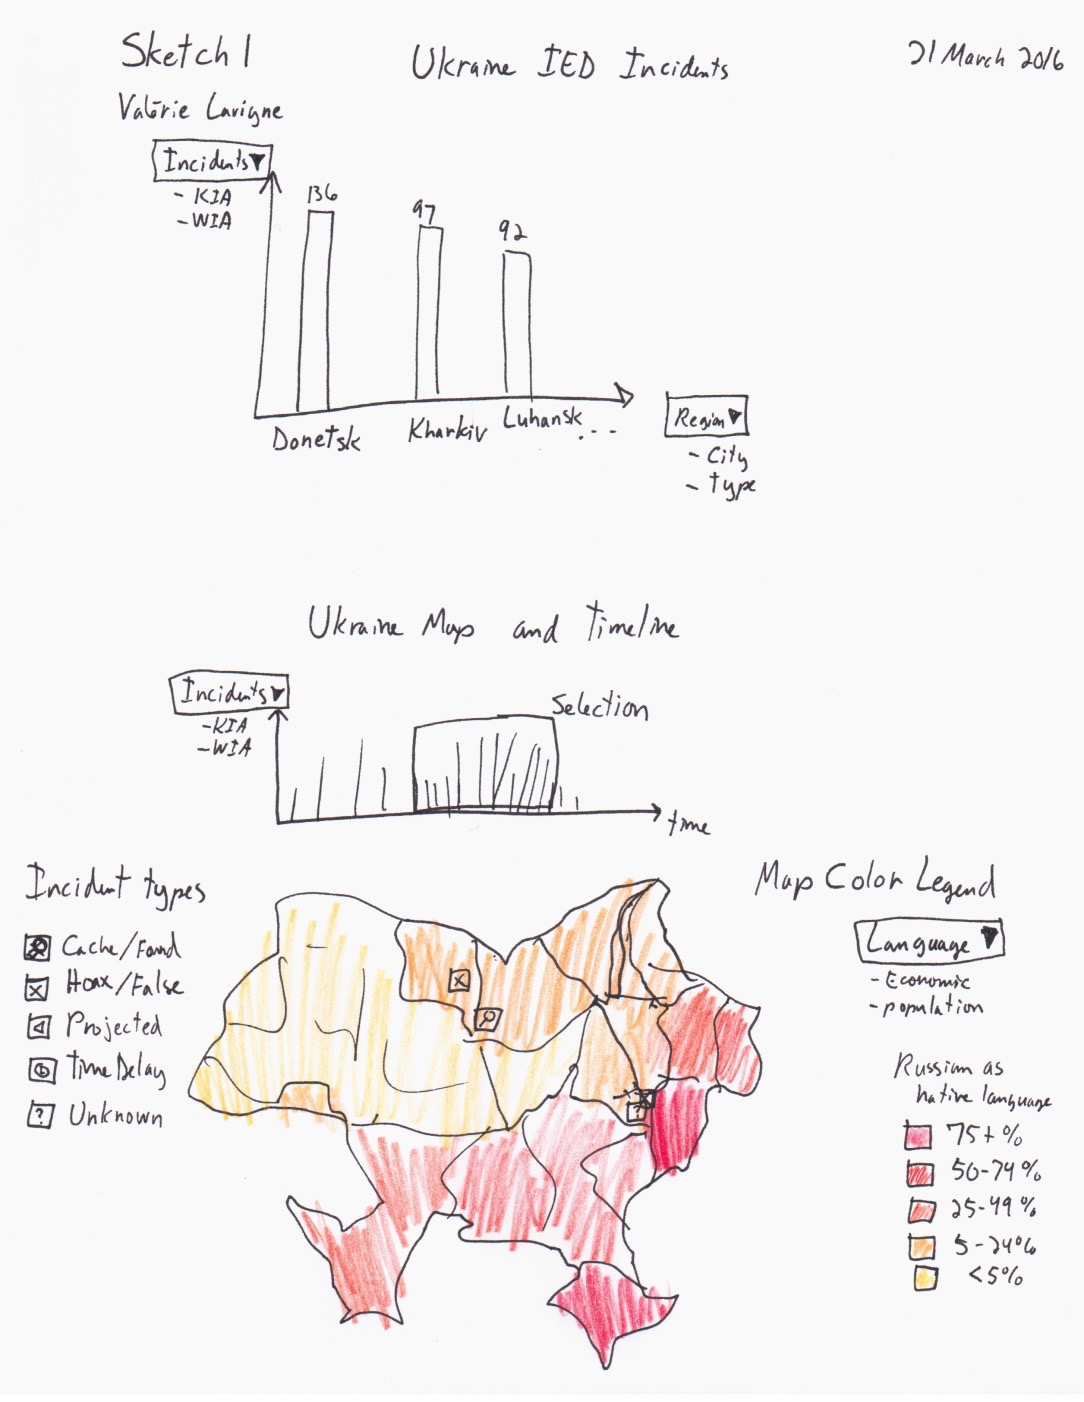 Sketch 1
Ukraine IED Incidents
21 March 2016
Valérie Lavigne
Incidents
- KIA
- WIA
136
97
92
Donetsk
Kharkiv
Luhansk
...
Region
- City
- Type
Ukraine Map and Timeline
Incidents
- KIA
- WIA
Selection
time
Incident types
Cache/Found
Hoax/False
Projected
Time Delay
? Unknown
Map Color Legend
Language
- Economic
- population
Russian as
native language
75+ %
50-74 %
25-49 %
5-24%
<5%
?